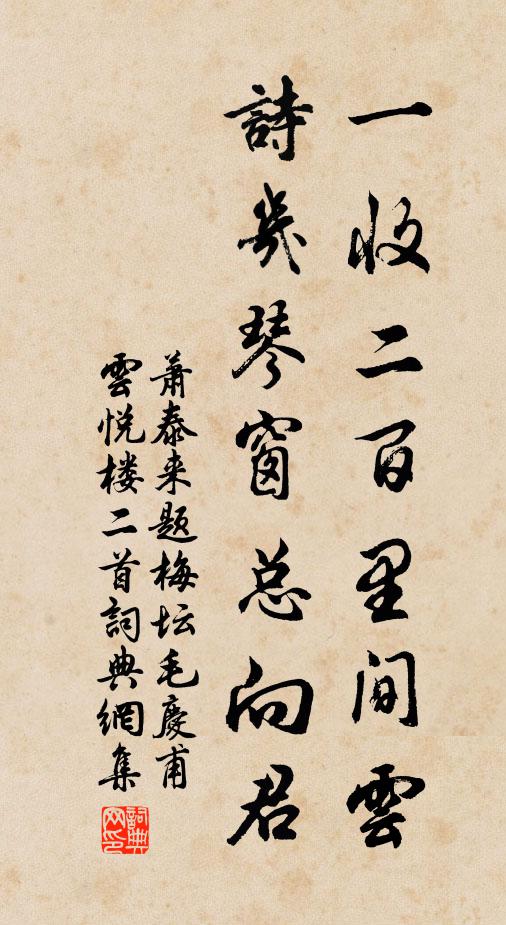 一收二百里间雲
詩幾琴窗总向君
萧泰来题梅坛毛慶甫
雲悦楼二首詞典網集
詞典网印